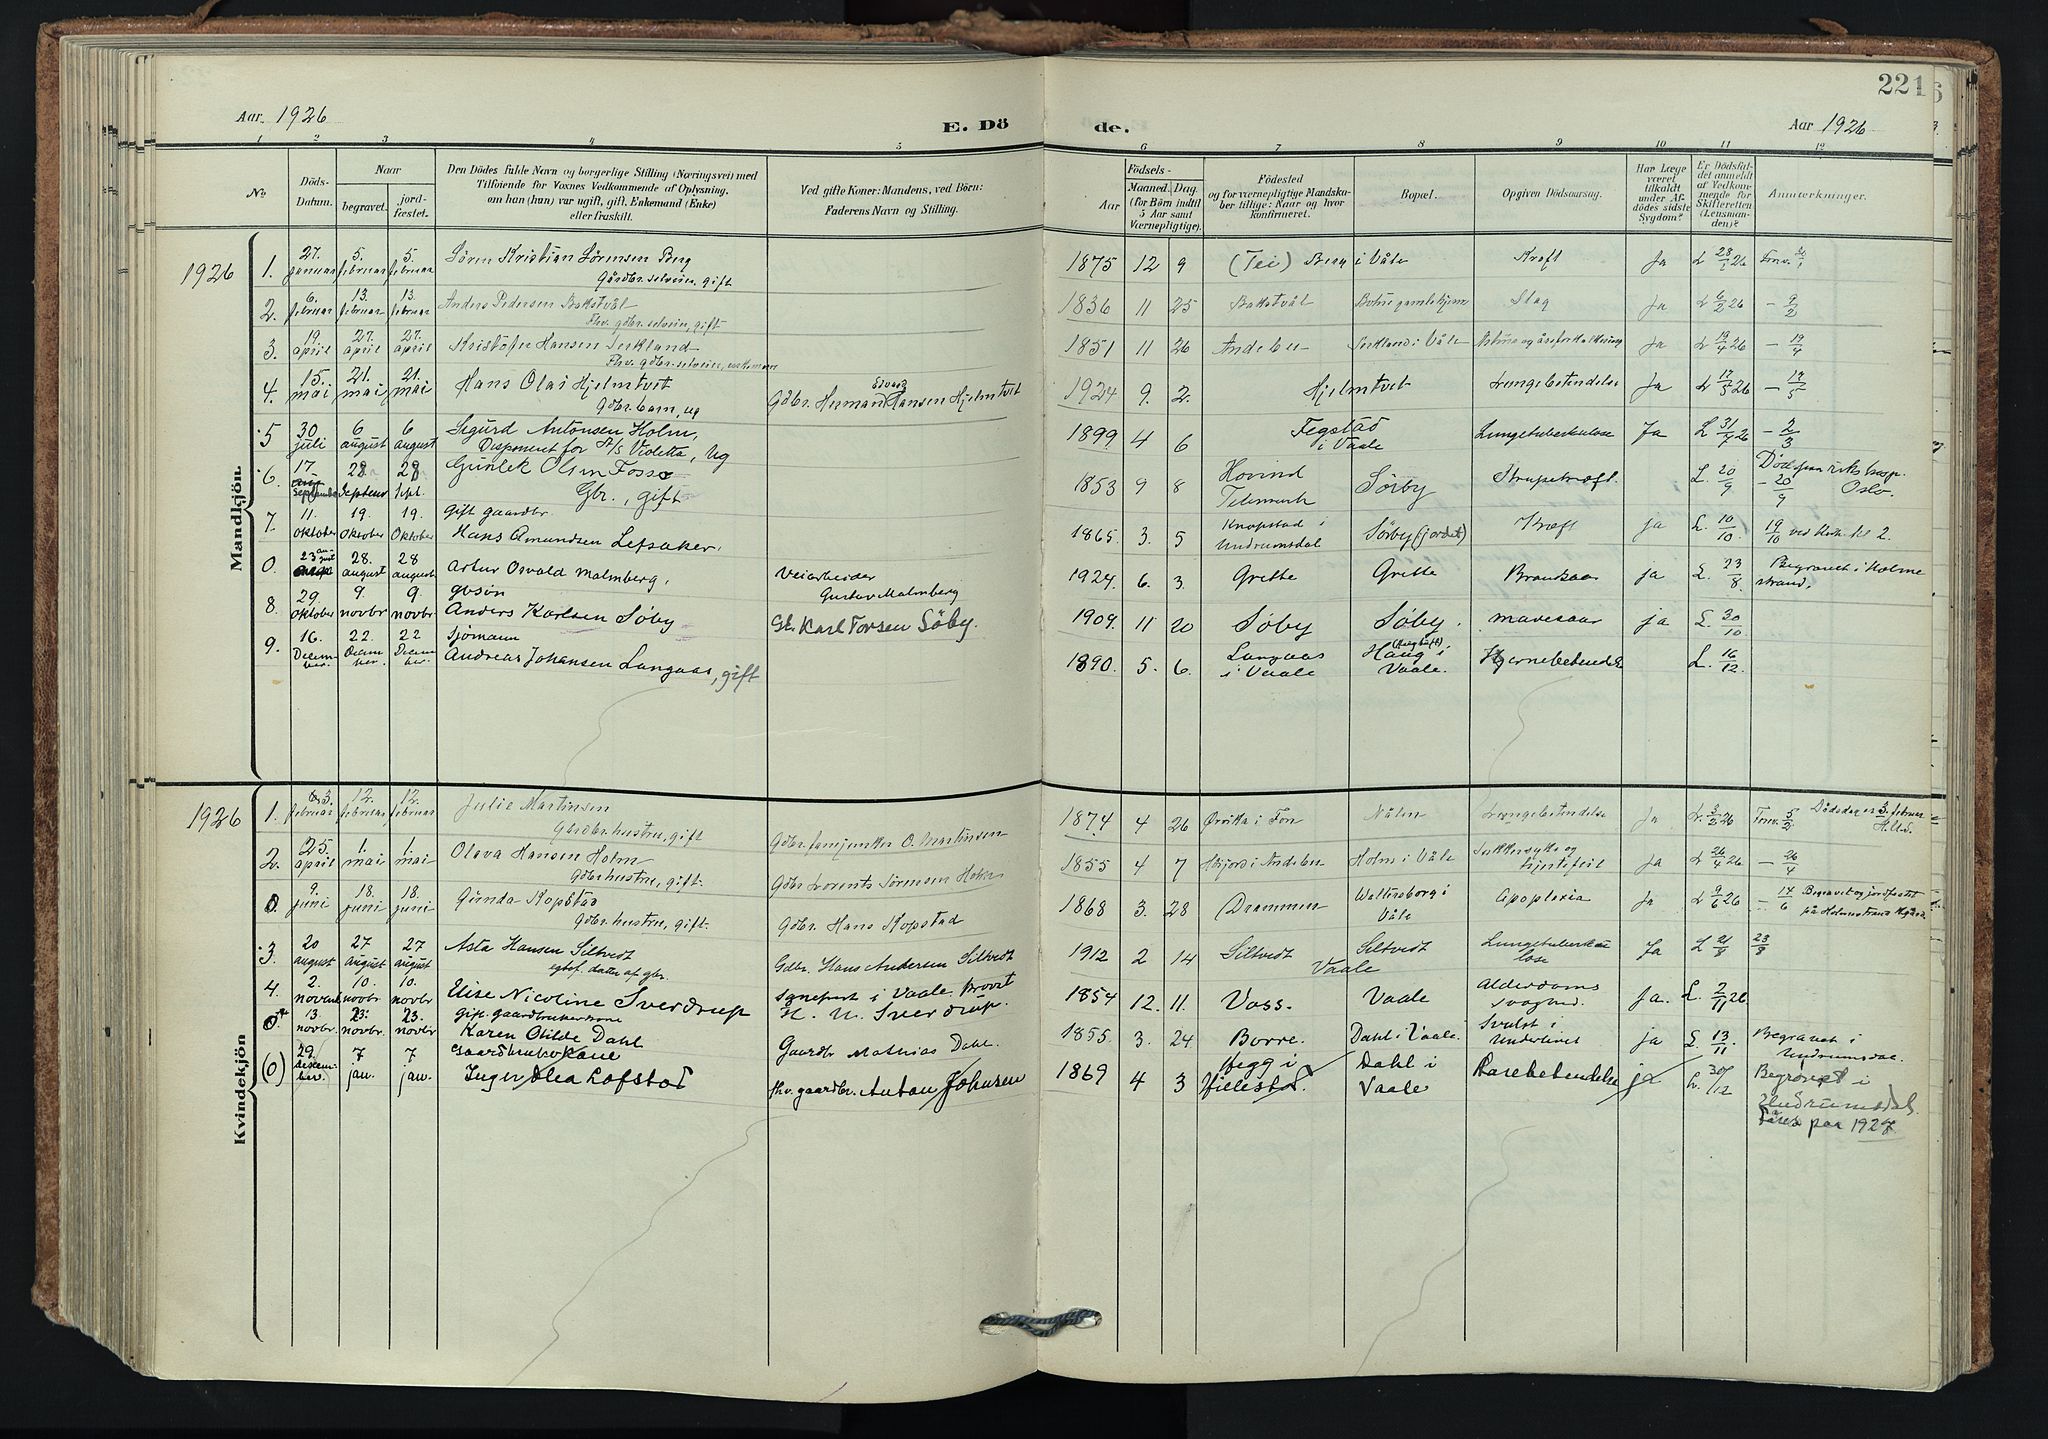 221
Aar 1926
E. Döde.
Aar 1926
1 2 3 4 5 6 7 8 9 10 11 12
No
Döds-Datum.
Naar
begravet.
jordfæstet.
Den Dödes fulde Navn og borgerlige Stilling (Næringsvei) med
Tilföiende for Voxnes Vedkommende af Oplysning,
om han (hun) var ugift, gift, Enkemand (Enke)
eller fraskilt.
Ved gifte Koner: Mandens, ved Börn:
Faderens Navn og Stilling.
Födsels-
Aar
Maaned. Dag.
(for Börn indtil
5 Aar samt
Værnepligtige).
Födested
og for værnepligtige Mandska-
ber tillige: Naar og hvor
konfirmeret.
Bopæl.
Opgiven Dödsaarsag.
Har Læge
været
tilkaldt
under Af-
dödes sidste
Sygdom?
Er Dödsfal-
det anmeldt
af Vedkom-
mende for
Skifteretten
(Lensman-
den)?
Anmærkninger.
Mandkjön
1926 1. 27. januar 5. februar 5. februar Sören Kristian Sörensen Berg
Gårdbr. selveier, gift
1875 12 9 (Tei) Berg i Våle Kreft Ja L 28/1 26
2. 6. februar 13. februar 13. februar Anders Pedersen Bakstvål
Fhv. gdbr. selveier, gift
1836 11 25 Bakstvål Slag Ja L 6/2 26 – 9/2
3. 19. april 27. april 27. april Kristofer Hansen
Fhv. gdbr. selveier, enkemann
1851 11 26 Andebu i Våle Ja L 19/4 26 – 19/4
4. 15. mai 21. mai 21. mai Hans Olai Hjelmtvet
Gdbr. barn, ug
Gdbr. Herman Hansen Hjelmtvet
1924 9. 2. Hjelmtvet Lungebetendelse Ja L 17/5 26 – 19/5
5 30 juli 6 august 6 august Sigurd Antonsen Holm,
Disponent for A/S Violetta, Ug
1899 4 6 Fegstad i Vaale Lungetuberkulose Ja L 31/7 26 – 2/3
6. 17 September 28 Septemb 28 Sept. Gunlek Olsen Fosse
Gbr., gift
1853 9 8 Hovind Telemark Sörby Strupekræft. L. 20/9 – 20/9 Död paa rikshosp. Oslo.
7. 11. oktober 19. Oktober 19. Oktober gift gaardbr.
Hans Amundsen Lefsaker.
1865. 3. 5 Knapstad i Undrumsdal Sörby (jordet) Kræft ja L. 10/10 19/10
0. 23 august 28. august 28 august Artur Osvald Malmberg,
Veiarbeider Gustav Malmberg
1924 6. 3. Gretте Grette ja L. 23/8 Begravet i Holmestrand.
8. 29. oktober 9. novbr 9. novbr gbsön
Anders Karlsen Söby
Gb. Karl Torsen Söby.
1909 11 20 Söby Söby. mavesaar ja L. 30/10
9. 16. December 22. December 22 December Sjömann
Andreas Johansen Langaas, gift
1890. 5. 6. Langaas i Vaale Haug i Vaale. Hjernebetendelse L. 16/12.
Kvindekjön
1926 1. 3. februar 12. februar 12. februar Julie Martinsen
Gårdbr. hustru, gift
O. Martinsen
1874 4 26 i Fon Lungebetendelse Ja L. 3/2 26 5/2 Dödsdag er 3. februar H.U.S.
2. 25. april 1. mai 1. mai Olava Hansen Holm
Gdbr. hustru, gift.
Gdbr. Lorents Sörensen Holm
1855 4 7 i Andebu Holm i Våle Sukkersyke og hjertefeil Ja L 26/4 26 – 26/4
0. 9. juni 18. juni 18. juni Gunda Kopstad
Gdbr. hustru, gift.
Gdbr. Hans Kopstad
1868 3. 28 Drammen i Våle Apoplexia Ja L 9/6 26 – 14/6 Begravet og jordfæstet på Holmestrand
3. 20 august 27 august 27 august Asta Hansen Siltvedt
datter af gbr.
Gdbr. Hans Andersen Siltvedt
1912 2 14 Siltvedt Siltvedt
Vaale
Lungetuberkulose Ja L 21/8 23/8
4. 2. novbr 10. novbr 10. novbr Elise Nicoline Sverdrup
Sognepræst i Vaale Provst
H. U. Sverdrup.
1854 12. 11. Voss. Vaale Alderdoms svaghed. Ja. L. 2/11 26
0. 13. novbr. 23. novbr 23. novbr gift. gaardbrukerkone
Karen Otilde Dahl
Gaardbr Mathias Dahl.
1855. 3. 24 Borre. Dahl i Vaale Svulst i Underlivet ja L. 13/11 Begravet i Undrumsdal.
(0) 29. december. 7 jan. 7 jan. Gaardbrukerkone
Inger Olea Lofstad
fhv. gaardbr. Anton Johnsen
1869 4 3 Hegg i Hillestad. Dahl i Vaale ja L. 30/12 Begravet i
Undrumsdal
føres paa 1927.